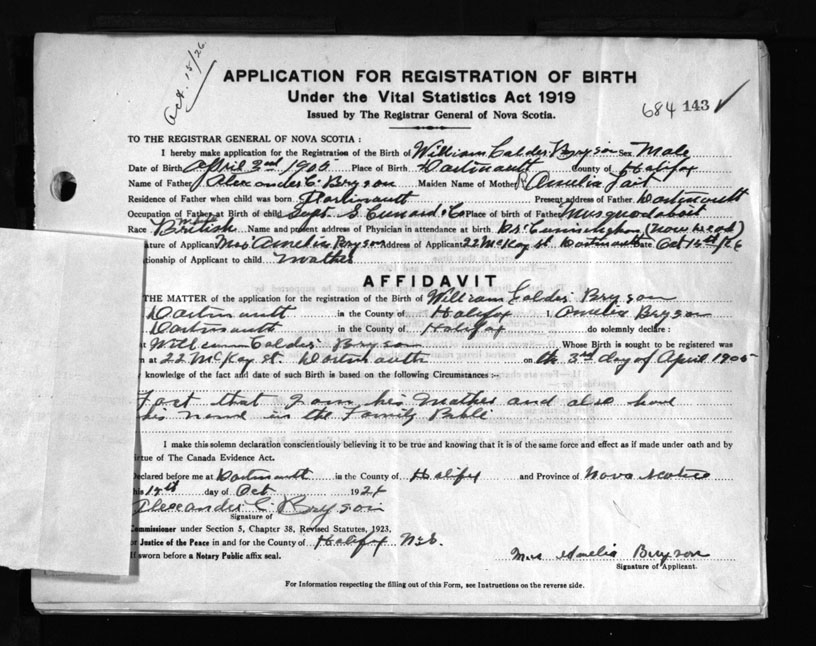 Oct. 15/26
APPLICATION FOR REGISTRATION OF BIRTH
Under the Vital Statistics Act 1919
Issued by The Registrar General of Nova Scotia.
684 143 ✓
TO THE REGISTRAR GENERAL OF NOVA SCOTIA:
I hereby make application for the Registration of the Birth of William Calder Bryson Sex Male
Date of Birth April 3rd 1905 Place of Birth Dartmouth County of Halifax
Name of Father Alexander C. Bryson Maiden Name of Mother Amelia Tait
Residence of Father when child was born Dartmouth Present address of Father Dartmouth
Occupation of Father at Birth of child Supt. S. Cunard & Co Place of birth of Father Musquodoboit
Race British Name and present address of Physician in attendance at birth Dr Cunningham (now dead)
ature of Applicant Mrs Amelia Bryson Address of Applicant 22 McKay St. Dartmouth Date Oct 15th/26
tionship of Applicant to child Mother
AFFIDAVIT
THE MATTER of the application for the registration of the Birth of William Calder Bryson
Dartmouth in the County of Halifax Amelia Bryson
Dartmouth in the County of Halifax do solemnly declare:
William Calder Bryson Whose Birth is sought to be registered was
n at 22 McKay St. Dartmouth on the 3rd day of April 1905
y knowledge of the fact and date of such Birth is based on the following Circumstances:-
Fact that I am his Mother and also have
his name in the Family Bible
I make this solemn declaration conscientiously believing it to be true and knowing that it is of the same force and effect as if made under oath and by
irtue of The Canada Evidence Act.
Declared before me at Dartmouth in the County of Halifax and Province of Nova Scotia
his 15th day of Oct 192
Alexander C. Bryson
Signature of
Commissioner under Section 5, Chapter 38, Revised Statutes, 1923,
or Justice of the Peace in and for the County of Halifax N.S.
If sworn before a Notary Public affix seal.
Mrs Amelia Bryson
Signature of Applicant.
For Information respecting the filling out of this Form, see Instructions on the reverse side.